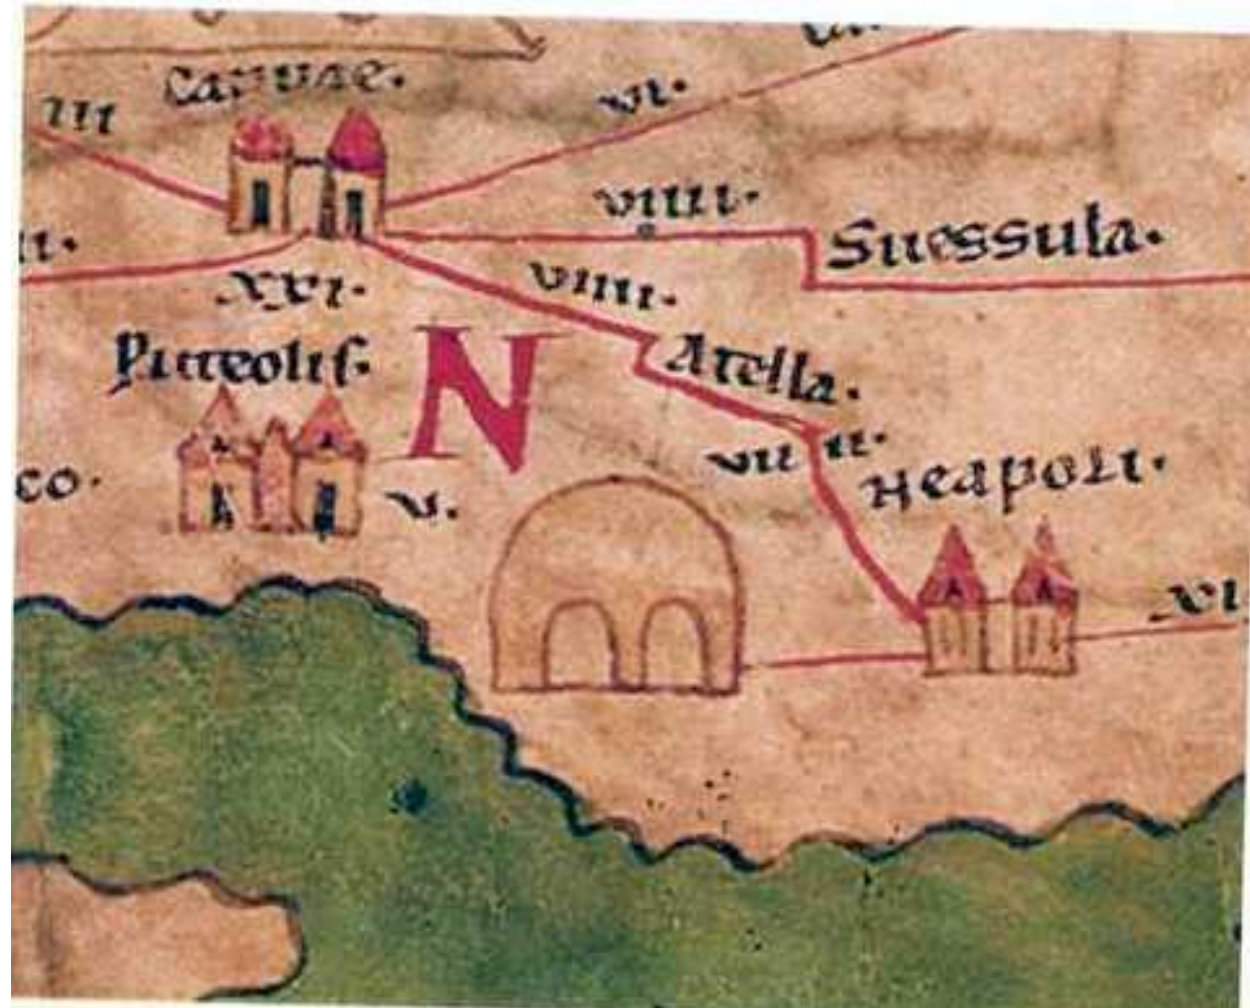 Capuae.
III
VI.
VIIII.
Suessula.
II.
XXI.
VIIII.
Puteolis.
N
Atella.
VIIII.
Neapoli.
CO.
V.
XI